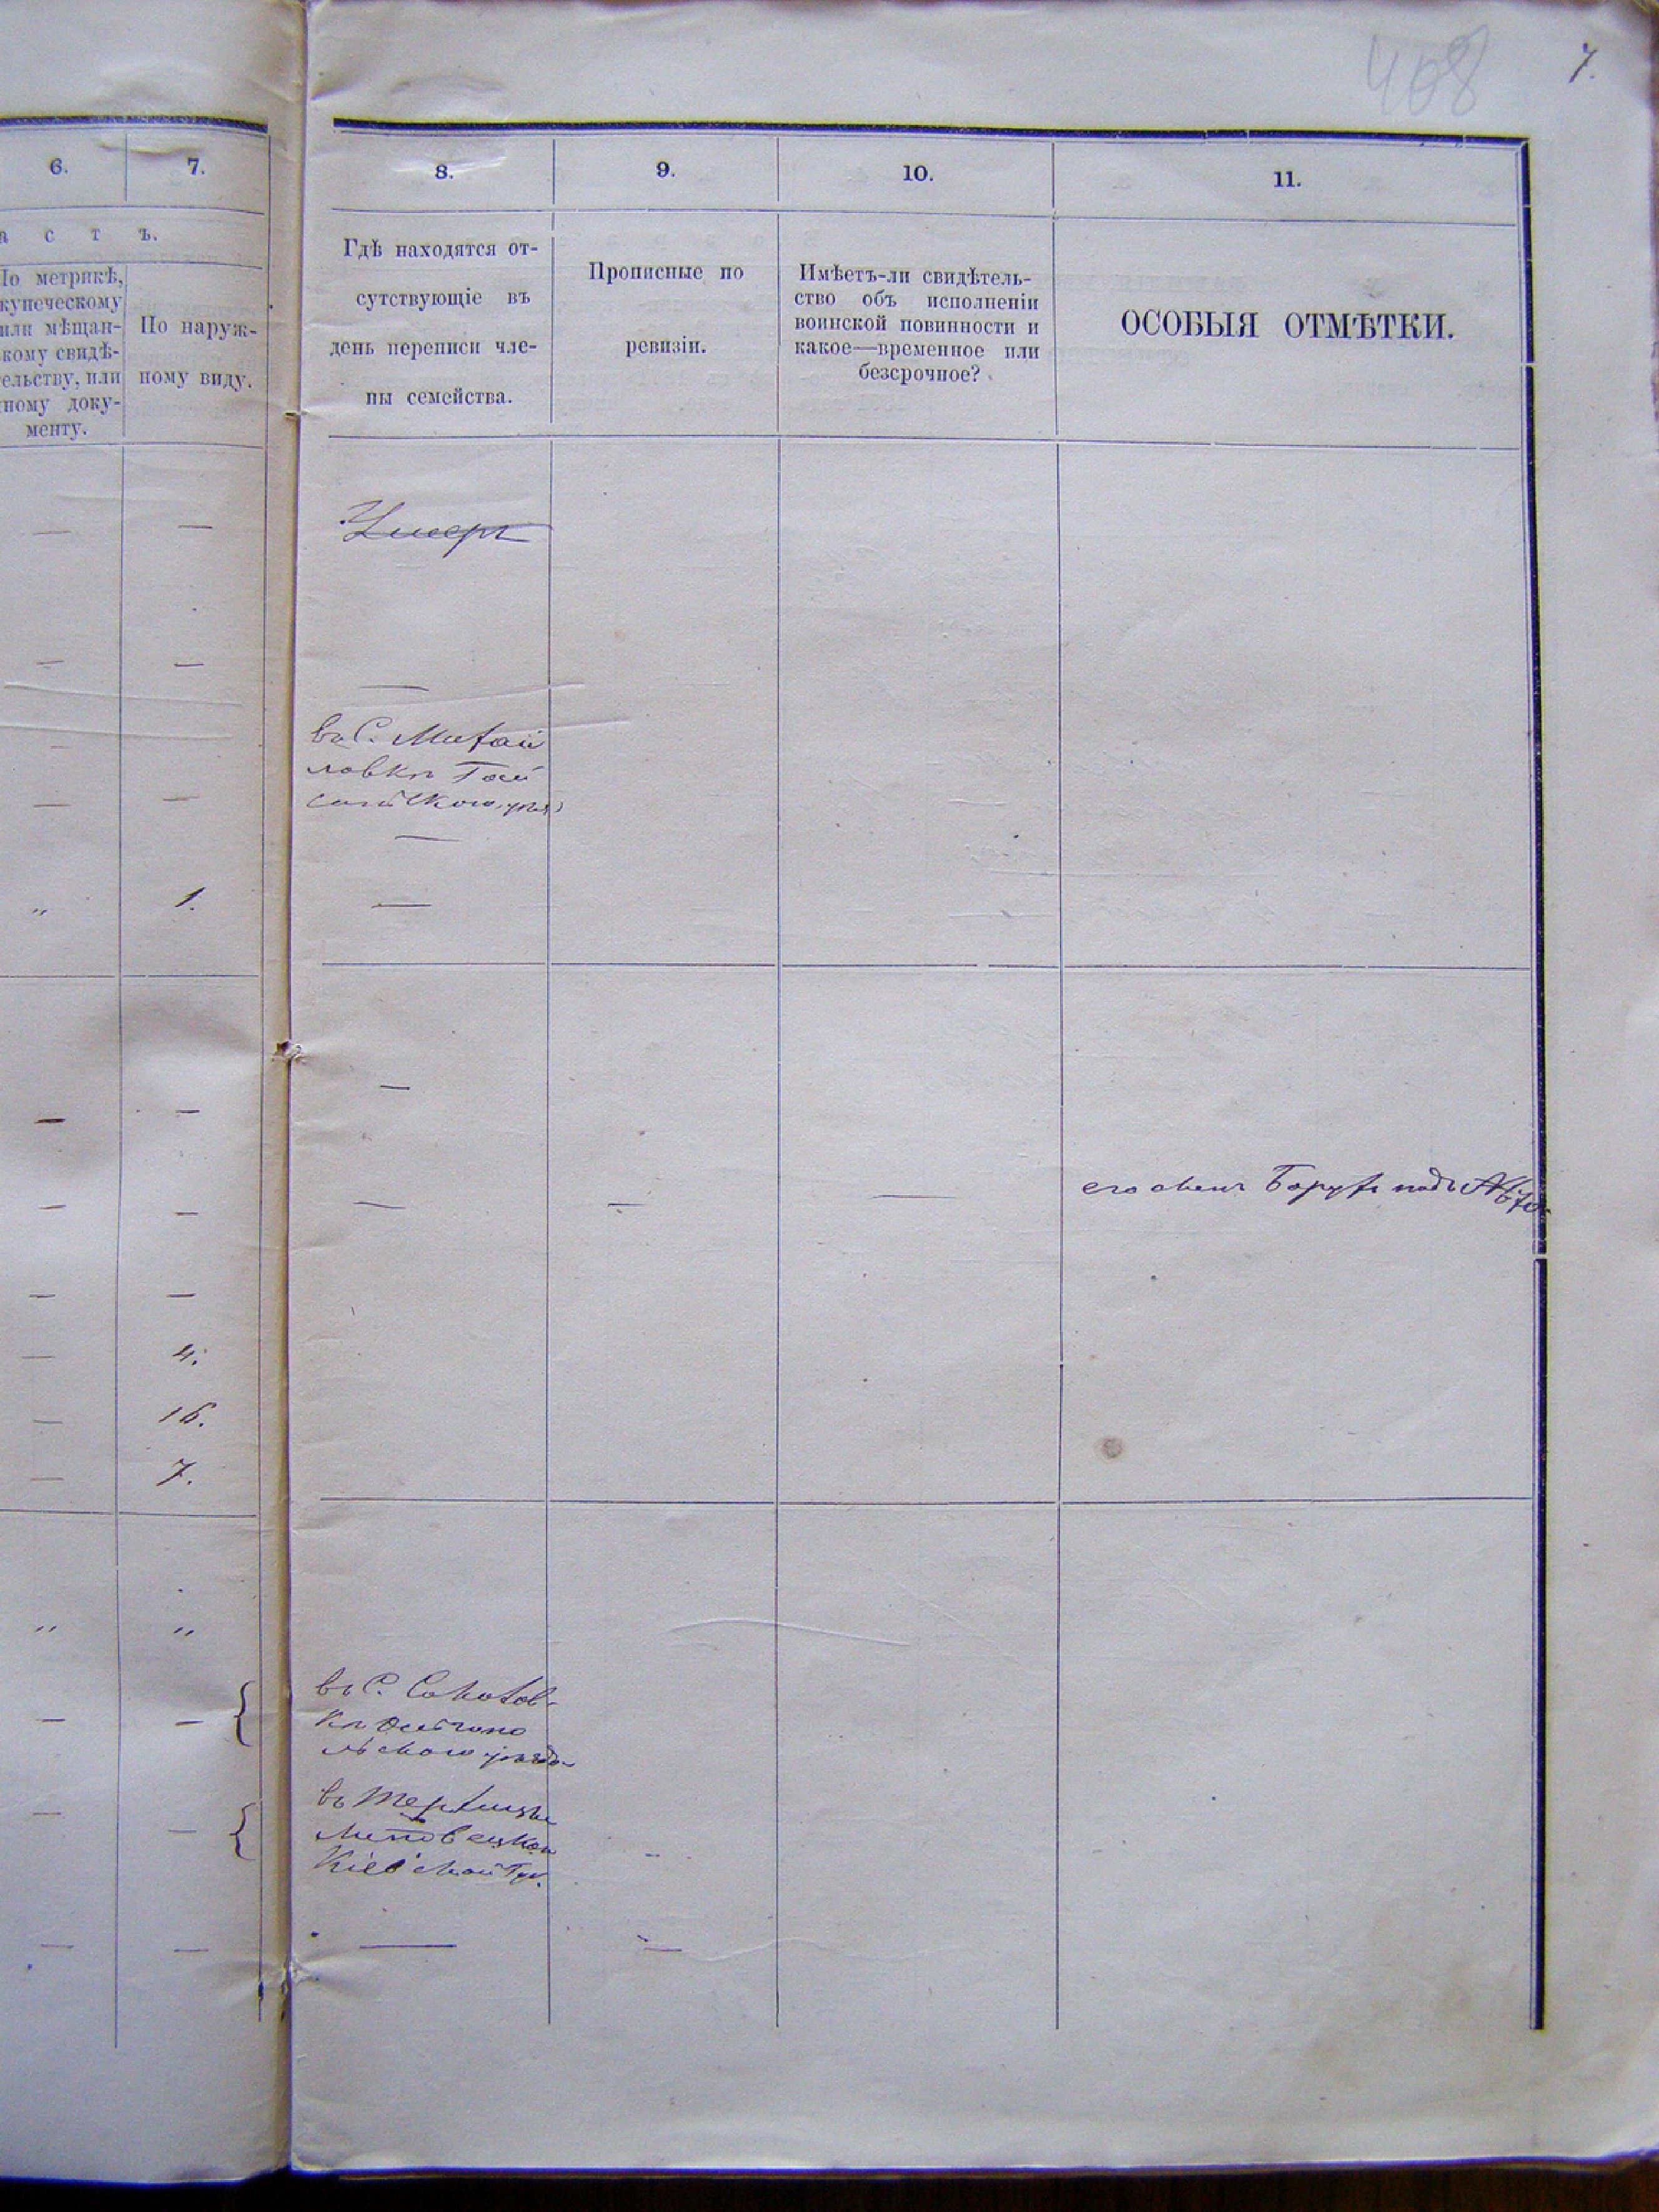 408
7.
6.
7.
а с т ъ.
По метрикѣ,
купеческому
или мѣщан-
скому свидѣ-
тельству, или
иному доку-
менту.
По наруж-
ному виду.
8.
9.
10.
11.
Гдѣ находятся от-
сутствующіе въ
день переписи чле-
ны семейства.
Прописные по
ревизіи.
Имѣетъ-ли свидѣтель-
ство объ исполненіи
воинской повинности и
какое—временное или
безсрочное?
ОСОБЫЯ ОТМѢТКИ.
— — Умеръ
— — —
въ С. Михай
ловкѣ Гай
— —
—
„ 1. —
— — —
— — — — — его сынъ Борухъ подъ
— —
— 4.
— 16.
— 7.
„ „
въ С.
— —
уѣзда
въ
— —
Кіевской Губ.
— — — —